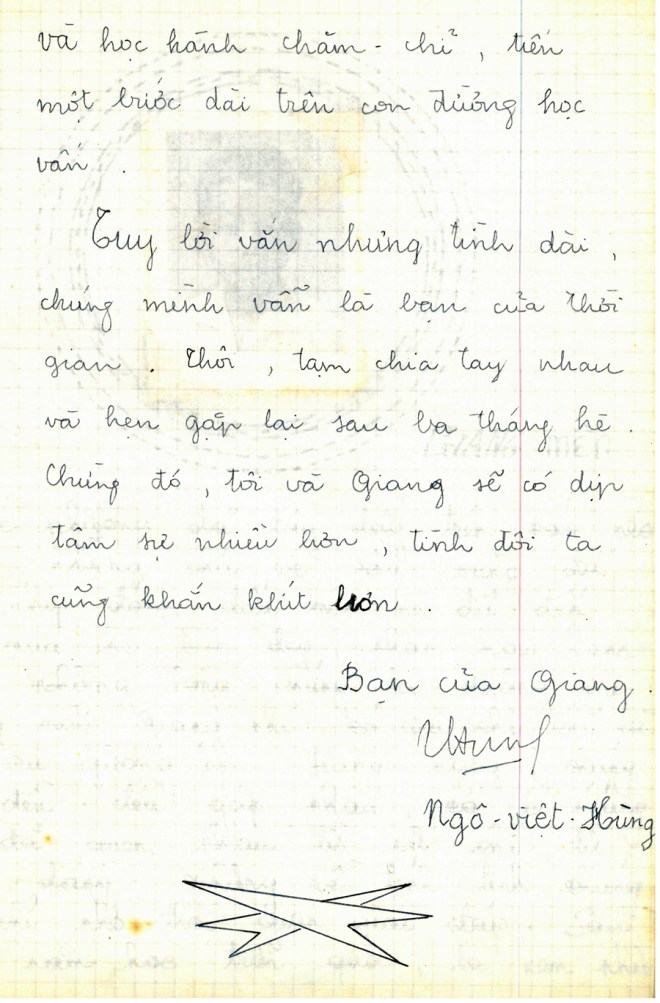 và học hành chăm - chỉ , tiến
một bước dài trên con đường học
vấn .
Tuy lời vắn nhưng tình dài ,
chúng mình vẫn là bạn của thời
gian . Thôi , tạm chia tay nhau
và hẹn gặp lại sau ba tháng hè .
Chừng đó , tôi và Giang sẽ có dịp
tâm sự nhiều hơn , tình đôi ta
cũng khắn khít hơn .
Bạn của Giang .
Ngô - việt - Hùng